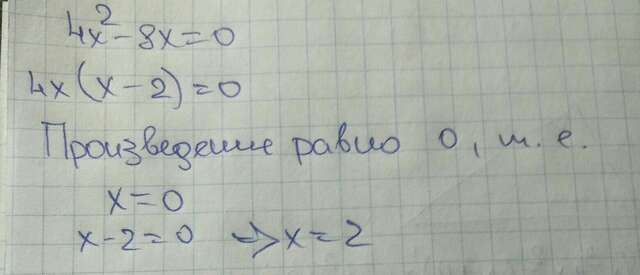 4x² - 8x = 0
4x(x - 2) = 0
Произведение равно 0, т.е.
x = 0
x - 2 = 0 => x = 2